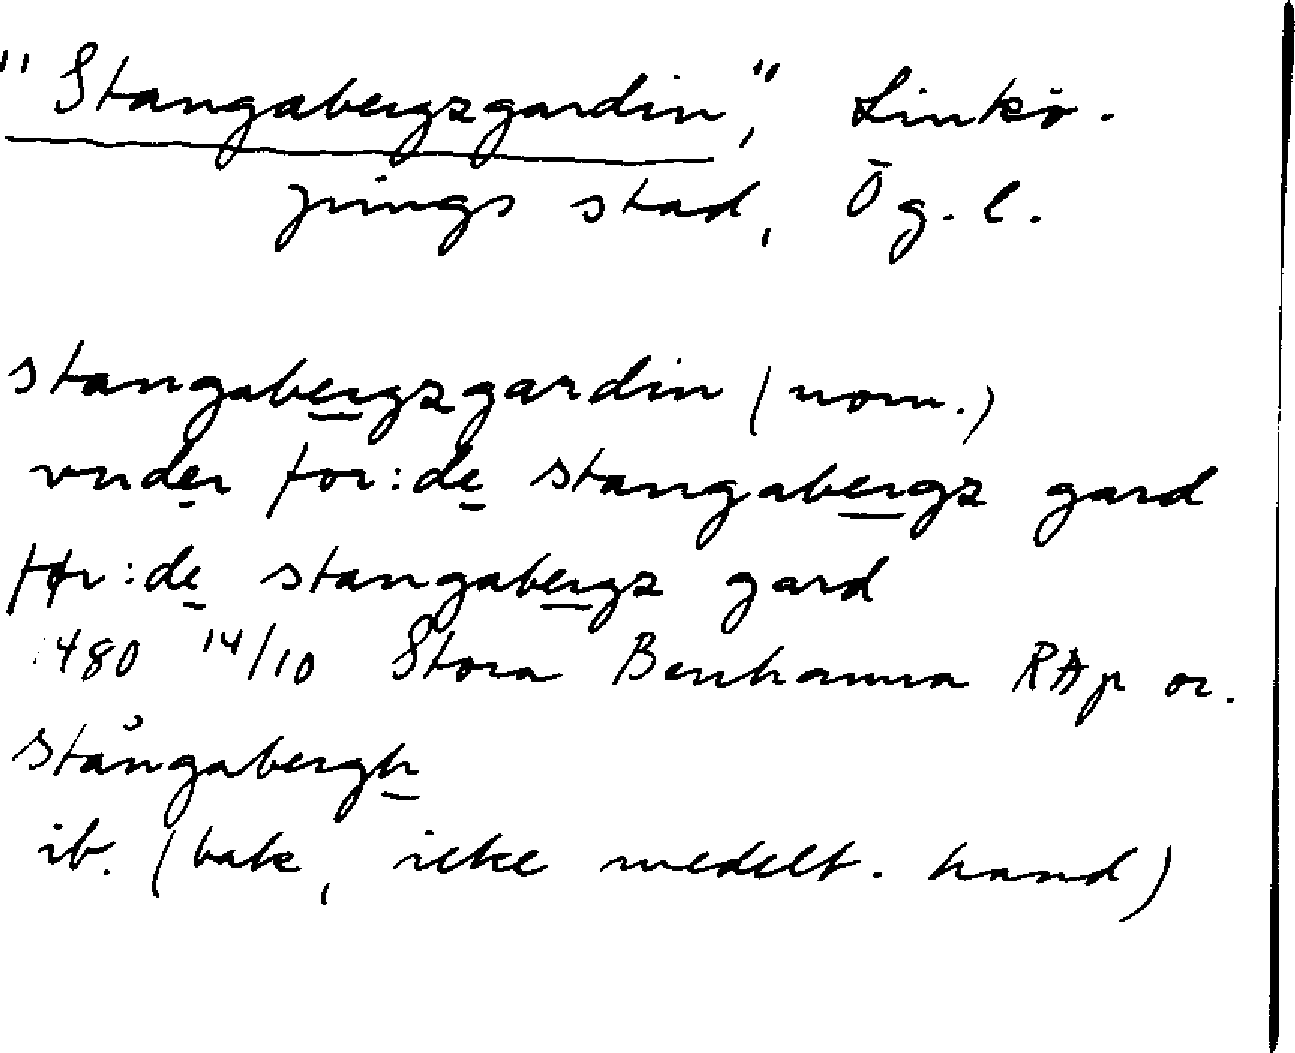 "Stangabergzgardin", Linkö-
pings stad, Ög. l.
stangabergzgardin (nom.)
vnder for:de stangabergz gard
før:de stangabergz gard
1480 14/10 Stora Benhamra RAp or.
stångabergh
ib. (bak, icke medelt. hand)